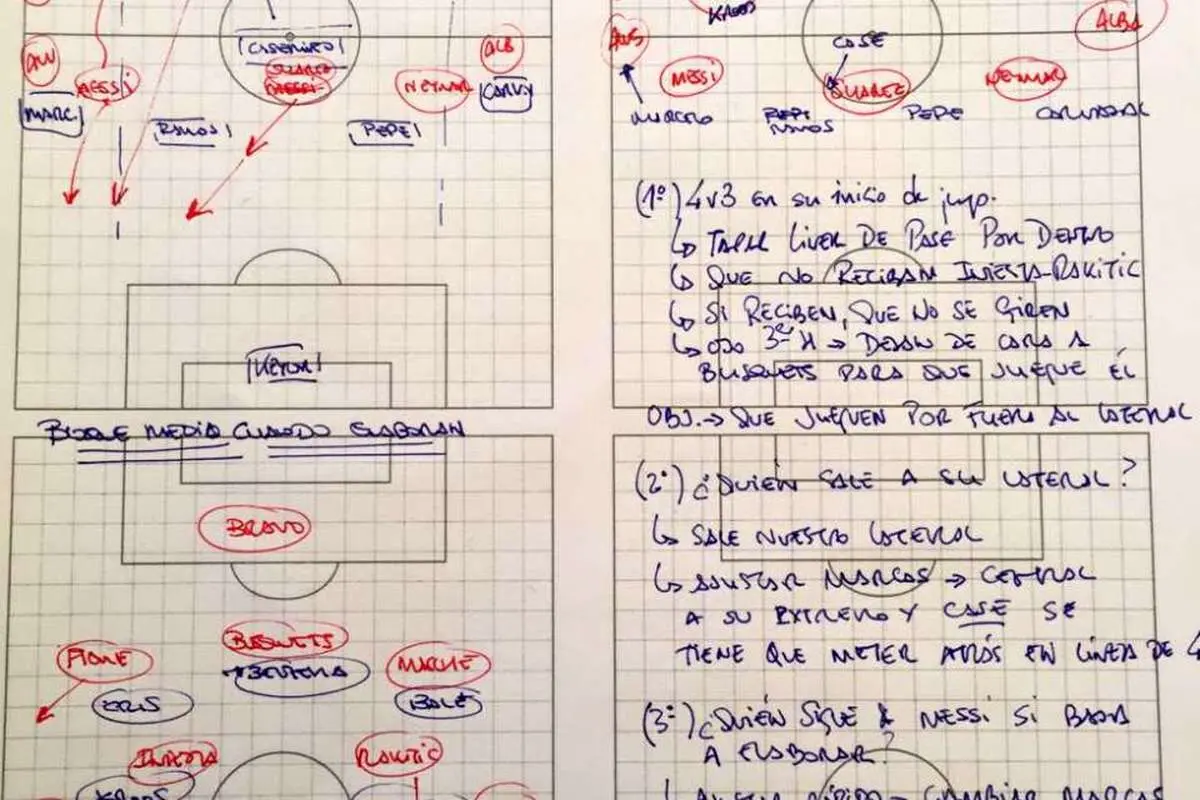 CASEMIRO
ALV
ALB
MESSI
SUAREZ
NEYMAR
MARC.
CARVY
RAMOS
PEPE
KEYLOR
BLOQUE MEDIO CUANDO ELABORAN
BRAVO
PIQUE
BUSQUETS
MASCHE
BENZEMA
CRIS
BALE
INIESTA
RAKITIC
KROOS
KROOS
ALBA
CASE
ALVS
MESSI
SUAREZ
NEYMAR
MARCELO
PEPE
RAMOS
PEPE
CARVAJAL
(1º) 4v3 en su inicio de jueg.
↳ TAPAR LINEA DE PASE POR DENTRO
↳ QUE NO RECIBAN INIESTA-RAKITIC
↳ SI RECIBEN, QUE NO SE GIREN
↳ OJO 3er H → DEJAN DE CARA A
BUSQUETS PARA QUE JUEGUE ÉL
OBJ. → QUE JUEGUEN POR FUERA AL LATERAL
(2º) ¿QUIÉN SALE A SU LATERAL?
↳ SALE NUESTRO LATERAL
↳ AJUSTAR MARCAS → CENTRAL
A SU EXTREMO Y CASE SE
TIENE QUE METER ATRÁS EN LÍNEA DE 4
(3º) ¿QUIÉN SIGUE A MESSI SI BAJA
A ELABORAR?
CAMBIAR MARCAS